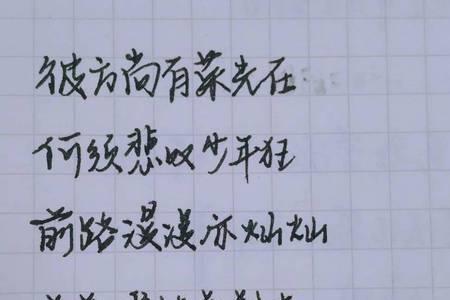 彼方尚有荣光在
何须悲叹少年狂
前路漫漫亦灿灿